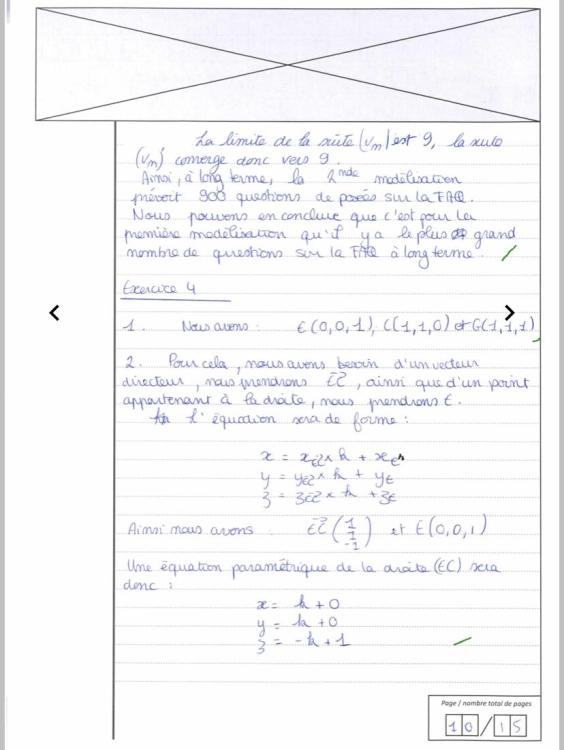 La limite de la suite (vn) est 9, la suite
(vn) converge donc vers 9.
Ainsi, à long terme, la 2nde modélisation
prévoit 900 questions de posées sur la FAQ.
Nous pouvons en conclure que c'est pour la
première modélisation qu'il y a le plus grand
nombre de questions sur la FAQ à long terme.
Exercice 4
1. Nous avons : E(0,0,1), C(1,1,0) et G(1,1,1)
2. Pour cela, nous avons besoin d'un vecteur
directeur, nous prendrons EC, ainsi que d'un point
appartenant à la droite, nous prendrons E.
L'équation sera de forme :
x = xEC × k + xE
y = yEC × k + yE
z = zEC × k + zE
Ainsi nous avons : EC (1 1 -1) et E(0,0,1)
Une équation paramétrique de la droite (EC) sera
donc :
x = k + 0
y = k + 0
z = -k + 1
Page / nombre total de pages
10 / 15